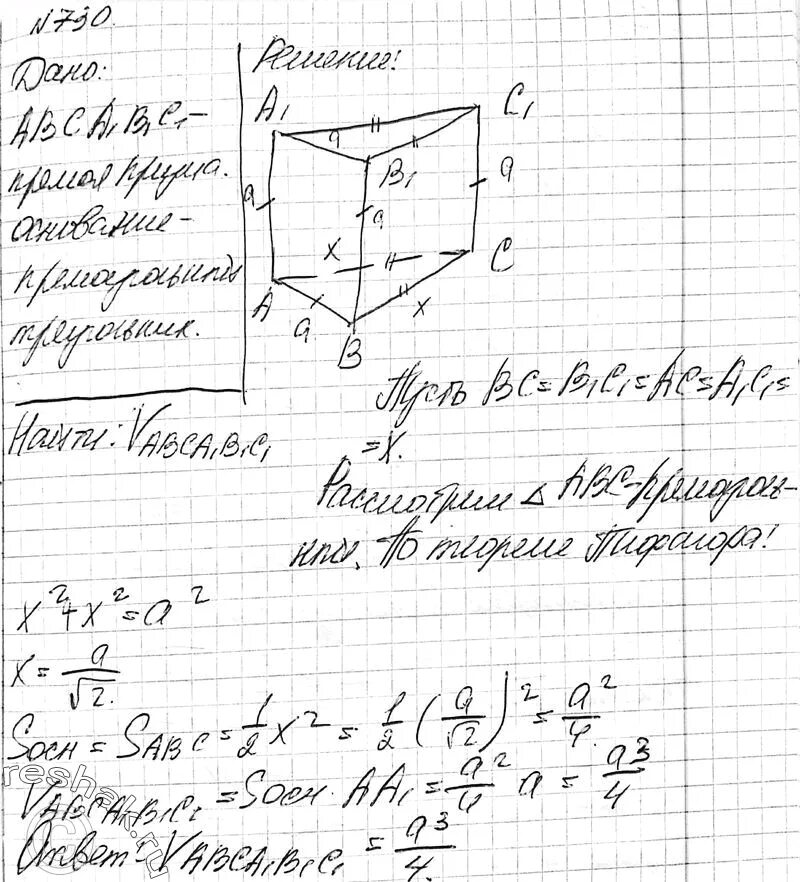 №790.
Дано:
ABCA₁B₁C₁-
прямая призма.
основание-
прямоугольный
треугольник.
Найти: V_ABCA₁B₁C₁
Решение:
A₁
C₁
a
B₁
a
a
a
x
C
A
a
x
B
Пусть BC=B₁C₁=AC=A₁C₁=
=x.
Рассмотрим △ ABC-прямоуголь-
ный. По теореме Пифагора:
x²+x²=a²
x=a/√2.
Sосн = S_ABC = 1/2 x² = 1/2 (a/√2)² = a²/4.
V_ABCA₁B₁C₁ = Sосн · AA₁ = a²/4 · a = a³/4
Ответ: V_ABCA₁B₁C₁ = a³/4.
reshak.ru